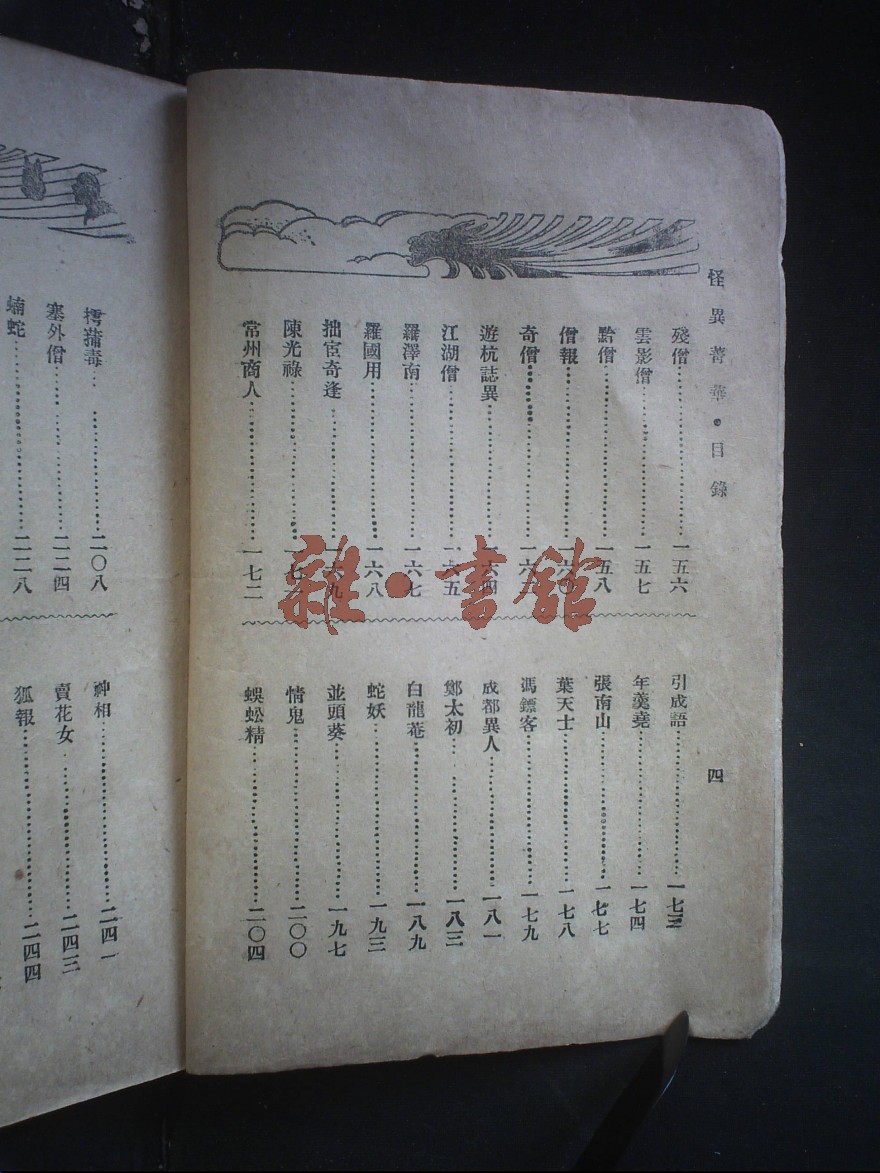 怪異菁華●目錄
四
殘僧 一五六
雲影僧 一五七
黔僧 一五八
僧報 一六〇
奇僧
遊杭誌異 一六四
江湖僧 一六五
羅澤南 一六七
羅國用 一六八
拙宦奇逢 一六九
陳光祿
常州商人 一七二
引成語
年羹堯 一七四
張南山 一七七
葉天士 一七八
馮鏢客 一七九
成都異人 一八一
鄭太初 一八三
白龍菴 一八九
蛇妖 一九三
並頭葵 一九七
情鬼 二〇〇
蜈蚣精 二〇四
樗蒱毒 二〇八
塞外僧 二二四
蝻蛇 二二八
神相 二四一
賣花女 二四三
狐報 二四四
雜·書館